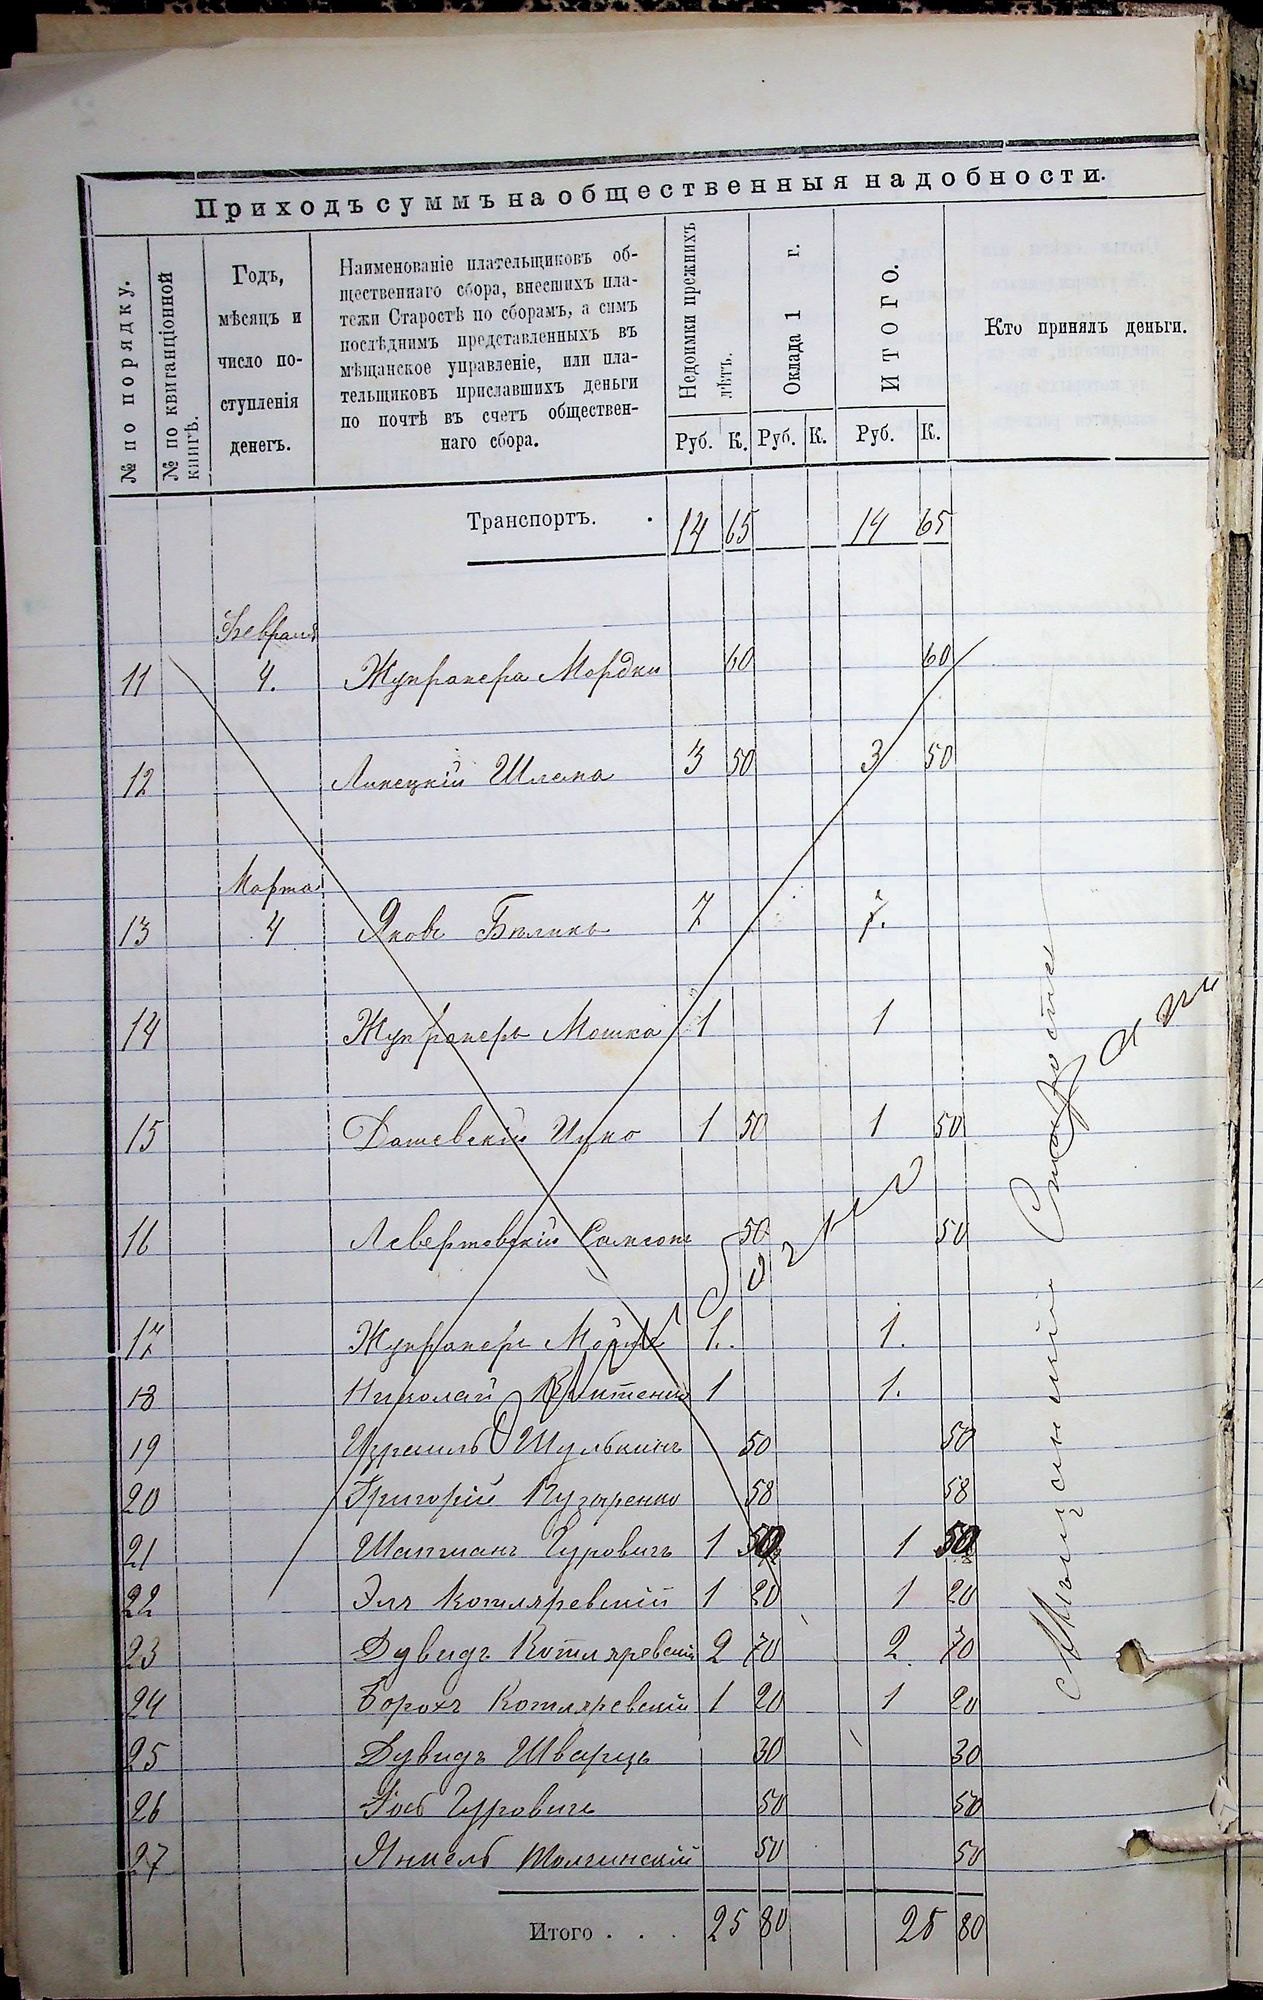 Приходъ суммъ на общественныя надобности.
№ по порядку.
№ по квитанціонной книгѣ.
Годъ,
мѣсяцъ и
число по-
ступленія
денегъ.
Наименованіе плательщиковъ об-
щественнаго сбора, внесшихъ пла-
тежи Старостѣ по сборамъ, а симъ
послѣднимъ представленныхъ въ
мѣщанское управленіе, или пла-
тельщиковъ приславшихъ деньги
по почтѣ въ счетъ обществен-
наго сбора.
Недоимки прежнихъ лѣтъ.
Оклада 1 г.
ИТОГО.
Кто принялъ деньги.
Руб. К. Руб. К. Руб. К.
Транспортъ. 14 65 14 65
Февраля
11 4. Жупранера Мордки 60 60
12 Липецкій Шлема 3 50 3 50
Марта
13 4 Яковъ Бѣликъ 7 7.
14 Жупранеръ Мошка 1 1
15 Дашевскій Ицко 1 50 1 50
16 Левертовскій Самсонъ 50 50
17 Жупранеръ 1. 1.
18 Николай 1 1.
19 Израиль Шулькинъ 50 50
20 Григорій Пузыренко 58 58
21 Шапманъ Гуровичъ 1 50 1 50
22 Эля Котляревскій 1 20 1 20
23 Дувидъ Котляревскій 2 70 2 70
24 Борохъ Котляревскій 1 20 1 20
25 Дувидъ Шварцъ 30 30
26 Гуровичъ 50 50
27 Янкель Толчинскій 50 50
Итого . . . 25 80 25 80
Мѣщанскій Староста